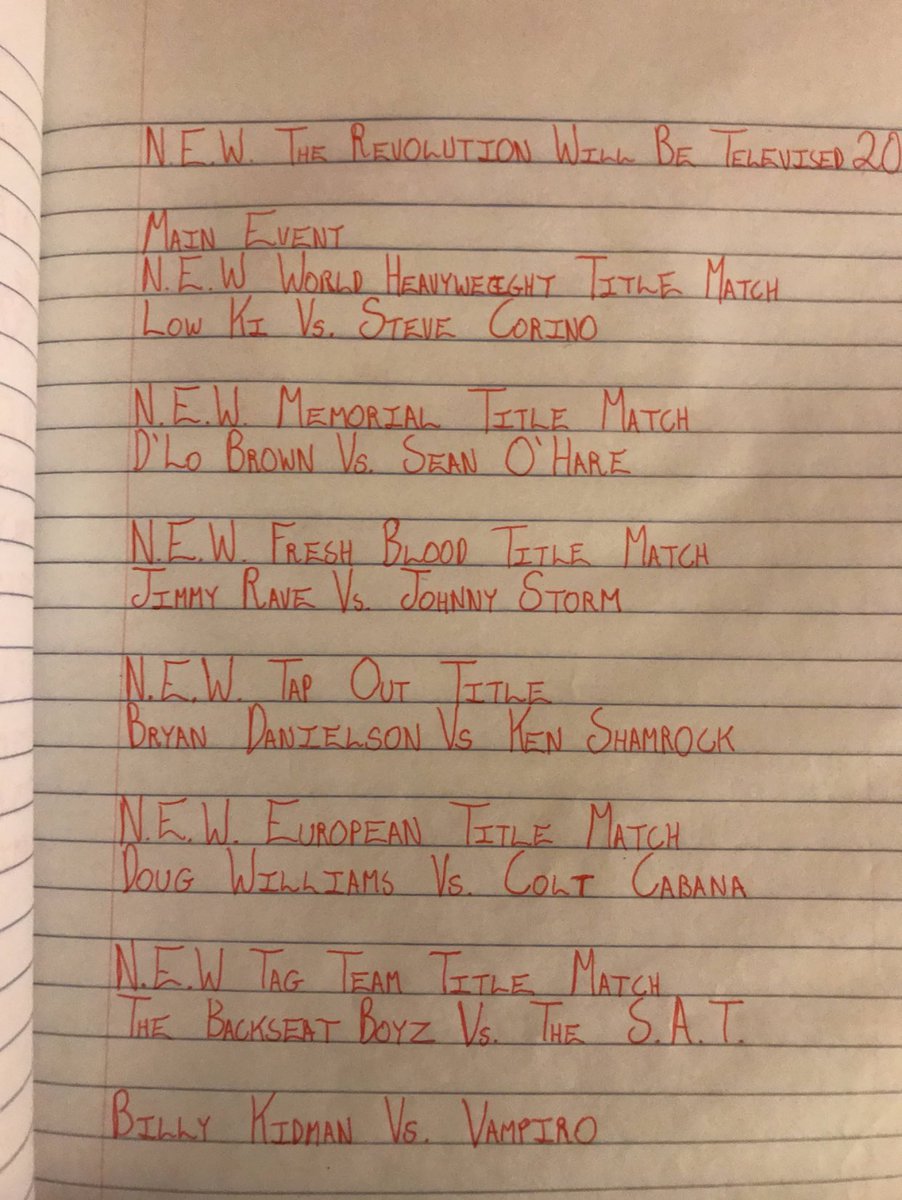 N.E.W. The Revolution Will Be Televised 20
Main Event
N.E.W World Heavyweight Title Match
Low Ki Vs. Steve Corino
N.E.W. Memorial Title Match
D'Lo Brown Vs. Sean O'Hare
N.E.W. Fresh Blood Title Match
Jimmy Rave Vs. Johnny Storm
N.E.W. Tap Out Title
Bryan Danielson Vs Ken Shamrock
N.E.W. European Title Match
Doug Williams Vs. Colt Cabana
N.E.W Tag Team Title Match
The Backseat Boyz Vs. The S.A.T.
Billy Kidman Vs. Vampiro